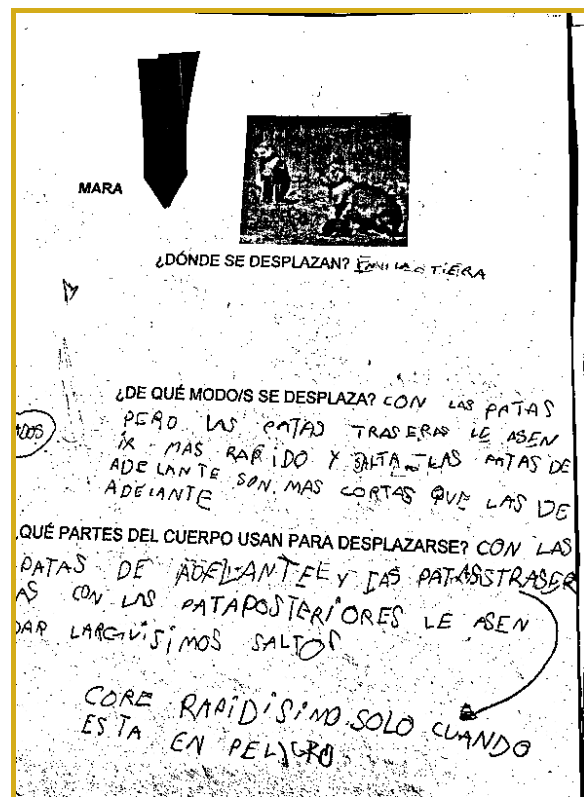 MARA
¿DÓNDE SE DESPLAZAN? EN LA TIERA
¿DE QUÉ MODO/S SE DESPLAZA? CON LAS PATAS
PERO LAS PATAS TRASERAS LE ASEN
IR MAS RAPIDO Y SALTA LAS PATAS DE
ADELANTE SON MAS CORTAS QUE LAS DE
ADELANTE
QUÉ PARTES DEL CUERPO USAN PARA DESPLAZARSE? CON LAS
PATAS DE ADELANTE Y LAS PATAS TRASER
AS CON LAS PATAPOSTERIORES LE ASEN
DAR LARGUISIMOS SALTOS
CORE RAPIDISIMO SOLO CUANDO
ESTA EN PELIGRO